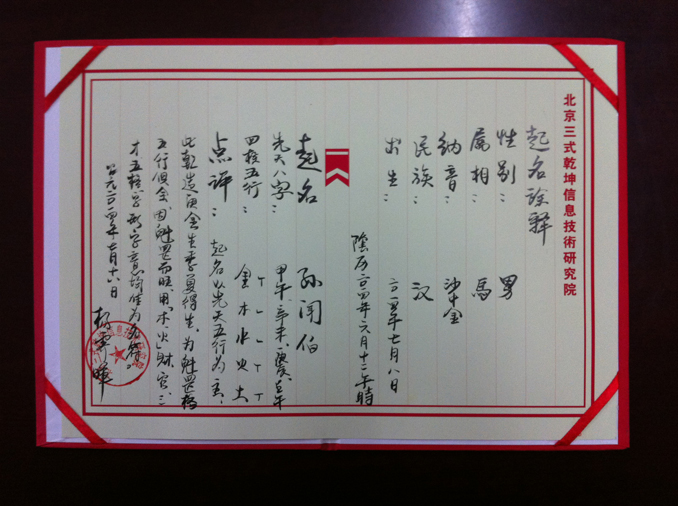 北京三式乾坤信息技術研究院
起名詮釋
性别：男
属相：馬
納音：沙中金
民族：汉
出生：二〇一四年七月八日
陰历二〇一四年六月十二午時
起名：孙闰伯
先天八字：甲午、辛未、庚辰、壬午
四柱五行：金木水火土
点评：起名以先天五行为主，
此乾造庚金生季夏得生，为魁罡格
五行俱全，因魁罡而旺，用“木火”财官，三
才五格
公元二〇一四年七月十六日